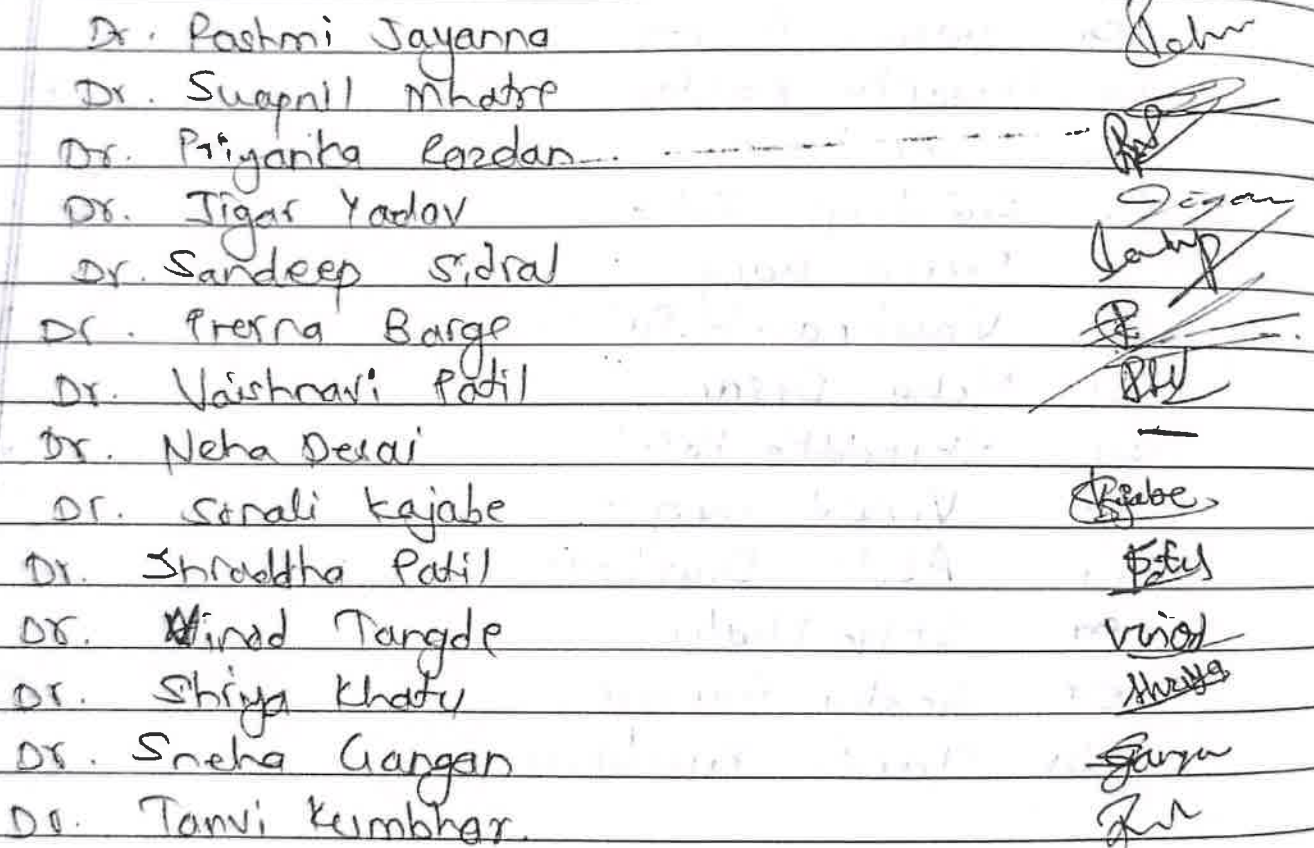 Dr. Pashmi Jayanna
Dr. Swapnil Mhatre
Dr. Priyanka Razdan
Dr. Jigar Yadav Jigar
Dr. Sandeep Sidral
Dr. Prerna Barge
Dr. Vaishnavi Patil
Dr. Neha Desai —
Dr. Sonali Kajabe Kajabe
Dr. Shraddha Patil Patil
Dr. Vinod Tangde Vinod
Dr. Shriya Khatu Shriya
Dr. Sneha Gangan
Dr. Tanvi Kumbhar.